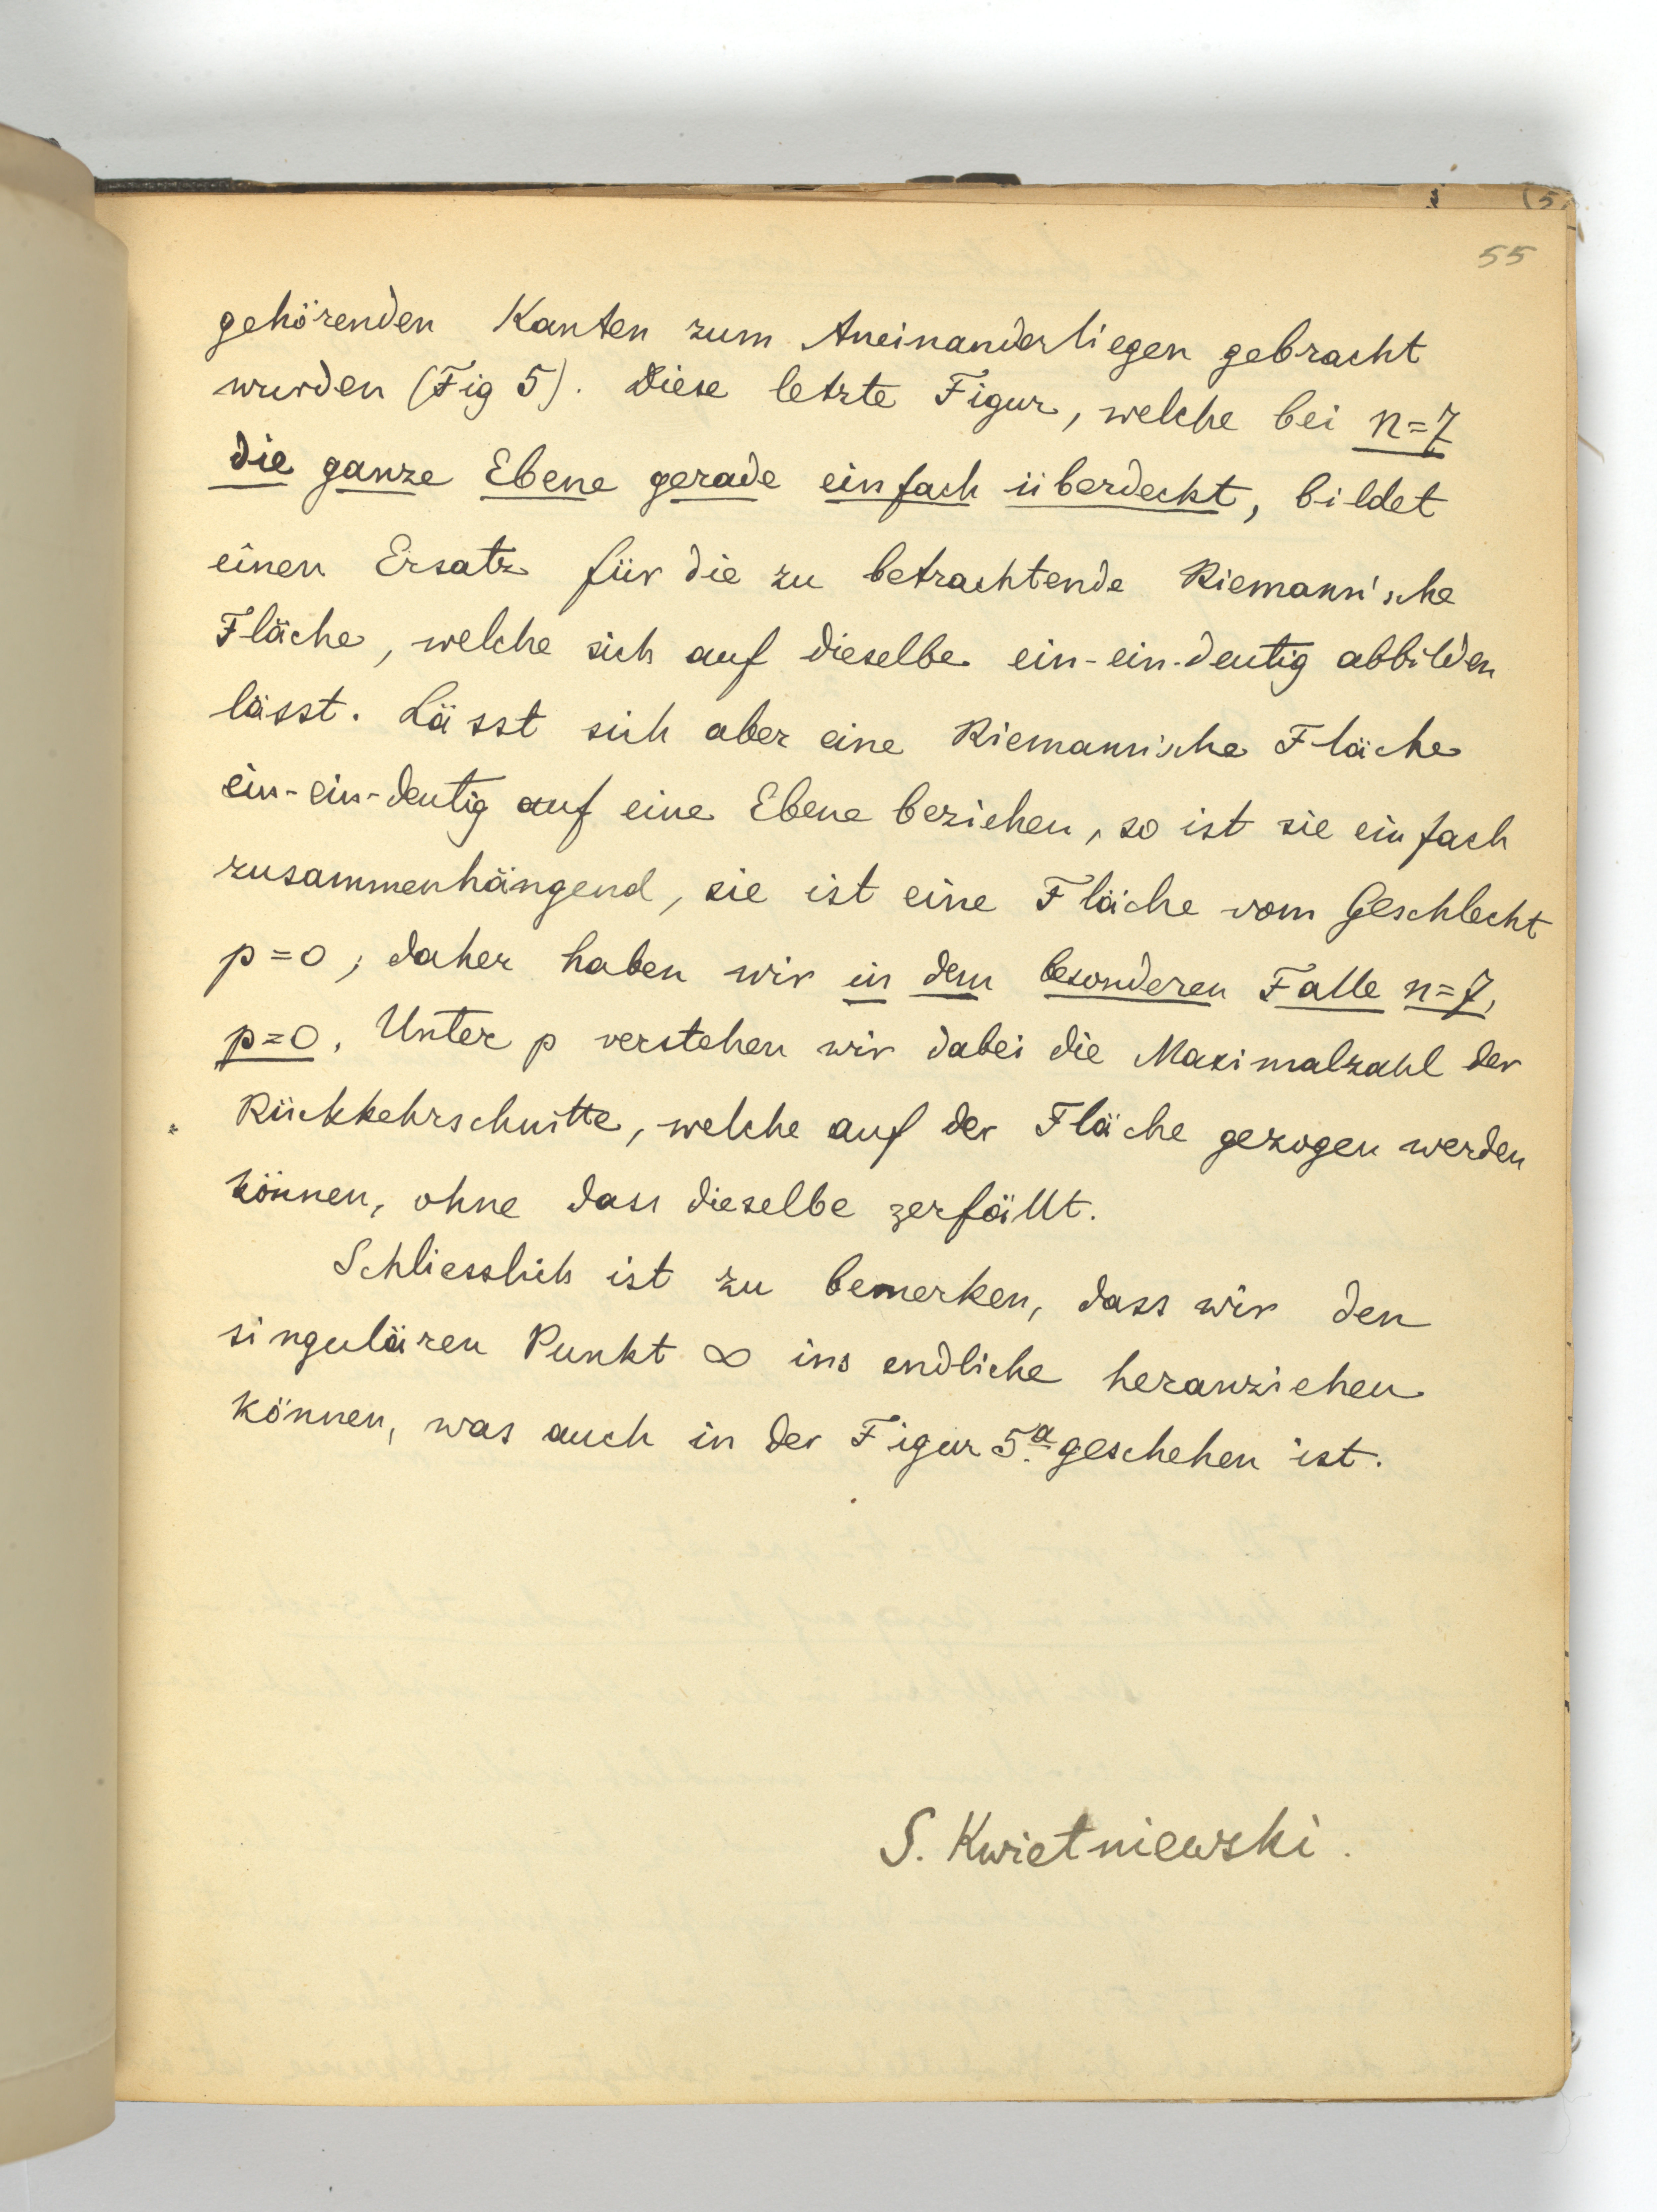 55
gehörenden Kanten zum Aneinanderliegen gebracht
wurden (Fig 5). Diese letzte Figur, welche bei n=7
die ganze Ebene gerade einfach überdeckt, bildet
einen Ersatz für die zu betrachtende Riemann'sche
Fläche, welche sich auf dieselbe ein-ein-deutig abbilden
lässt. Lässt sich aber eine Riemannische Fläche
ein-ein-deutig auf eine Ebene beziehen, so ist sie einfach
zusammenhängend, sie ist eine Fläche vom Geschlecht
p=0; daher haben wir in dem besonderen Falle n=7,
p=0. Unter p verstehen wir dabei die Maximalzahl der
Rückkehrschnitte, welche auf der Fläche gezogen werden
können, ohne dass dieselbe zerfällt.
Schliesslich ist zu bemerken, dass wir den
singulären Punkt ∞ ins endliche heranziehen
können, was auch in der Figur 5a geschehen ist.
S. Kwietniewski.